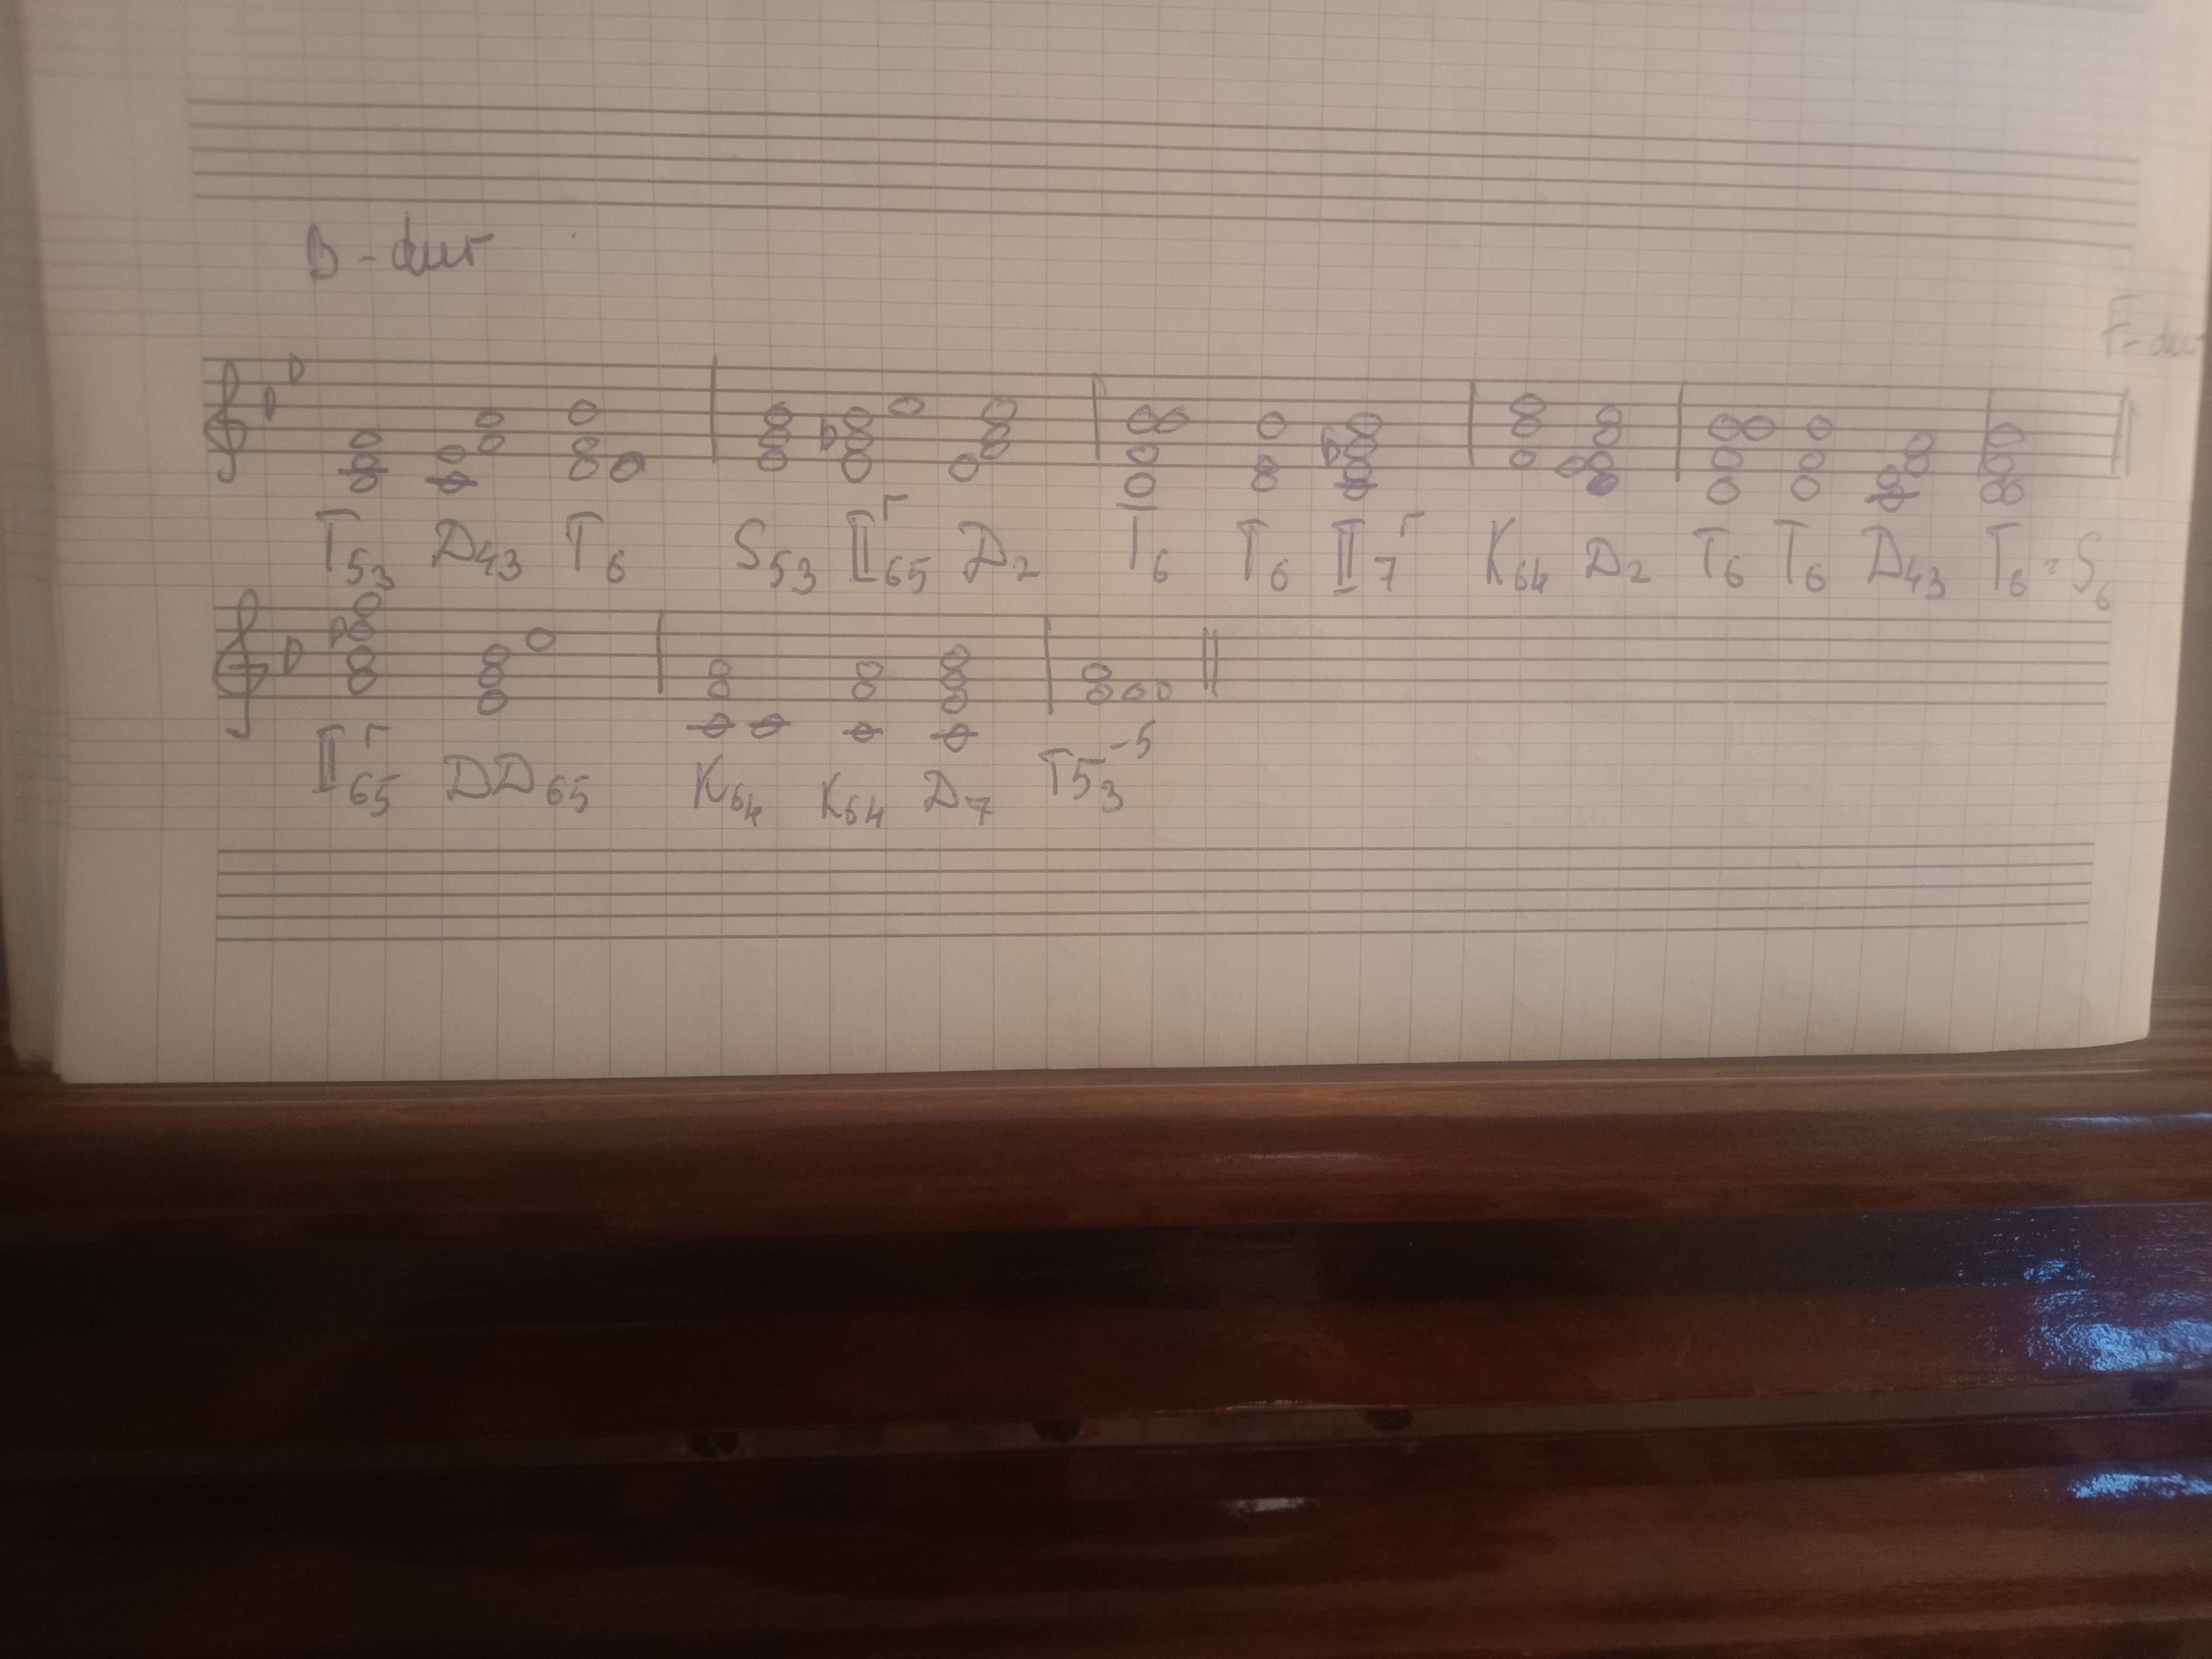 B-dur
F-dur
T53 D43 T6 S53 II65г D2 T6 T6 II7г K64 D2 T6 T6 D43 T6=S6
II65г DD65 K64 K64 D7 T53-5